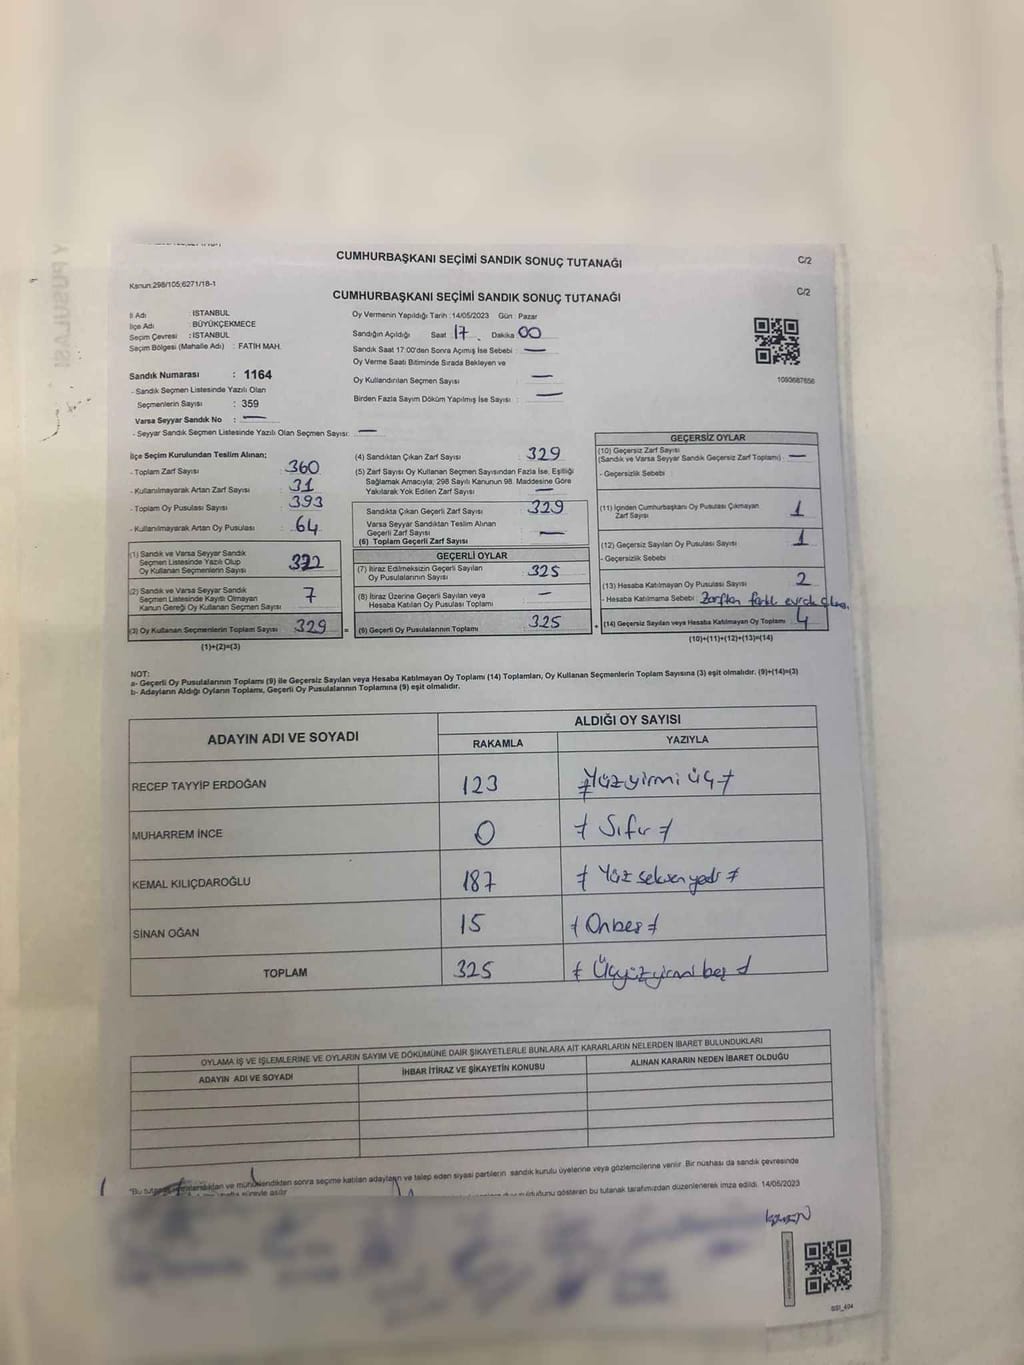 CUMHURBAŞKANI SEÇİMİ SANDIK SONUÇ TUTANAĞI
C/2
Kanun:298/105;6271/18-1
CUMHURBAŞKANI SEÇİMİ SANDIK SONUÇ TUTANAĞI
C/2
İl Adı : İSTANBUL
İlçe Adı : BÜYÜKÇEKMECE
Seçim Çevresi : İSTANBUL
Seçim Bölgesi (Mahalle Adı) : FATİH MAH.
Oy Vermenin Yapıldığı Tarih :14/05/2023 Gün : Pazar
Sandığın Açıldığı Saat 17 . Dakika 00
Sandık Saat 17:00'den Sonra Açımış İse Sebebi : —
Oy Verme Saati Bitiminde Sırada Bekleyen ve
Oy Kullandırılan Seçmen Sayısı : —
Birden Fazla Sayım Döküm Yapılmış İse Sayısı : —
1093687656
Sandık Numarası : 1164
- Sandık Seçmen Listesinde Yazılı Olan
Seçmenlerin Sayısı : 359
Varsa Seyyar Sandık No : —
- Seyyar Sandık Seçmen Listesinde Yazılı Olan Seçmen Sayısı: —
İlçe Seçim Kurulundan Teslim Alınan;
- Toplam Zarf Sayısı : 360
- Kullanılmayarak Artan Zarf Sayısı : 31
- Toplam Oy Pusulası Sayısı : 393
- Kullanılmayarak Artan Oy Pusulası : 64
(1) Sandık ve Varsa Seyyar Sandık
Seçmen Listesinde Yazılı Olup
Oy Kullanan Seçmenlerin Sayısı : 322
(2) Sandık ve Varsa Seyyar Sandık
Seçmen Listesinde Kayıtlı Olmayan
Kanun Gereği Oy Kullanan Seçmen Sayısı : 7
(3) Oy Kullanan Seçmenlerin Toplam Sayısı : 329 =
(1)+(2)=(3)
(4) Sandıktan Çıkan Zarf Sayısı : 329
(5) Zarf Sayısı Oy Kullanan Seçmen Sayısından Fazla İse, Eşitliği
Sağlamak Amacıyla; 298 Sayılı Kanunun 98. Maddesine Göre
Yakılarak Yok Edilen Zarf Sayısı : —
Sandıkta Çıkan Geçerli Zarf Sayısı : 329
Varsa Seyyar Sandıktan Teslim Alınan
Geçerli Zarf Sayısı : —
(6) Toplam Geçerli Zarf Sayısı
GEÇERLİ OYLAR
(7) İtiraz Edilmeksizin Geçerli Sayılan
Oy Pusulalarının Sayısı : 325
(8) İtiraz Üzerine Geçerli Sayılan veya
Hesaba Katılan Oy Pusulası Toplamı : —
(9) Geçerli Oy Pusulalarının Toplamı : 325 +
GEÇERSİZ OYLAR
(10) Geçersiz Zarf Sayısı
(Sandık ve Varsa Seyyar Sandık Geçersiz Zarf Toplamı) : —
- Geçersizlik Sebebi :
(11) İçinden Cumhurbaşkanı Oy Pusulası Çıkmayan
Zarf Sayısı : 1
(12) Geçersiz Sayılan Oy Pusulası Sayısı : 1
- Geçersizlik Sebebi :
(13) Hesaba Katılmayan Oy Pusulası Sayısı : 2
- Hesaba Katılmama Sebebi : Zarftan farklı evrak
(14) Geçersiz Sayılan veya Hesaba Katılmayan Oy Toplamı : 4
(10)+(11)+(12)+(13)=(14)
NOT:
a- Geçerli Oy Pusulalarının Toplamı (9) ile Geçersiz Sayılan veya Hesaba Katılmayan Oy Toplamı (14) Toplamları, Oy Kullanan Seçmenlerin Toplam Sayısına (3) eşit olmalıdır. (9)+(14)=(3)
b- Adayların Aldığı Oyların Toplamı, Geçerli Oy Pusulalarının Toplamına (9) eşit olmalıdır.
ADAYIN ADI VE SOYADI
ALDIĞI OY SAYISI
RAKAMLA YAZIYLA
RECEP TAYYİP ERDOĞAN 123 Yüzyirmi üç
MUHARREM İNCE 0 Sıfır
KEMAL KILIÇDAROĞLU 187 Yüz seksen yedi
SİNAN OĞAN 15 Onbeş
TOPLAM 325 Üçyüzyirmi beş
OYLAMA İŞ VE İŞLEMLERİNE VE OYLARIN SAYIM VE DÖKÜMÜNE DAİR ŞİKAYETLERLE BUNLARA AİT KARARLARIN NELERDEN İBARET BULUNDUKLARI
ADAYIN ADI VE SOYADI İHBAR İTİRAZ VE ŞİKAYETİN KONUSU ALINAN KARARIN NEDEN İBARET OLDUĞU
sonra seçime katılan adayların ve talep eden siyasi partilerin sandık kurulu üyelerine veya gözlemcilerine verilir. Bir nüshası da sandık çevresinde
süreyle asılır
gösteren bu tutanak tarafımızdan düzenlenerek imza edildi. 14/05/2023